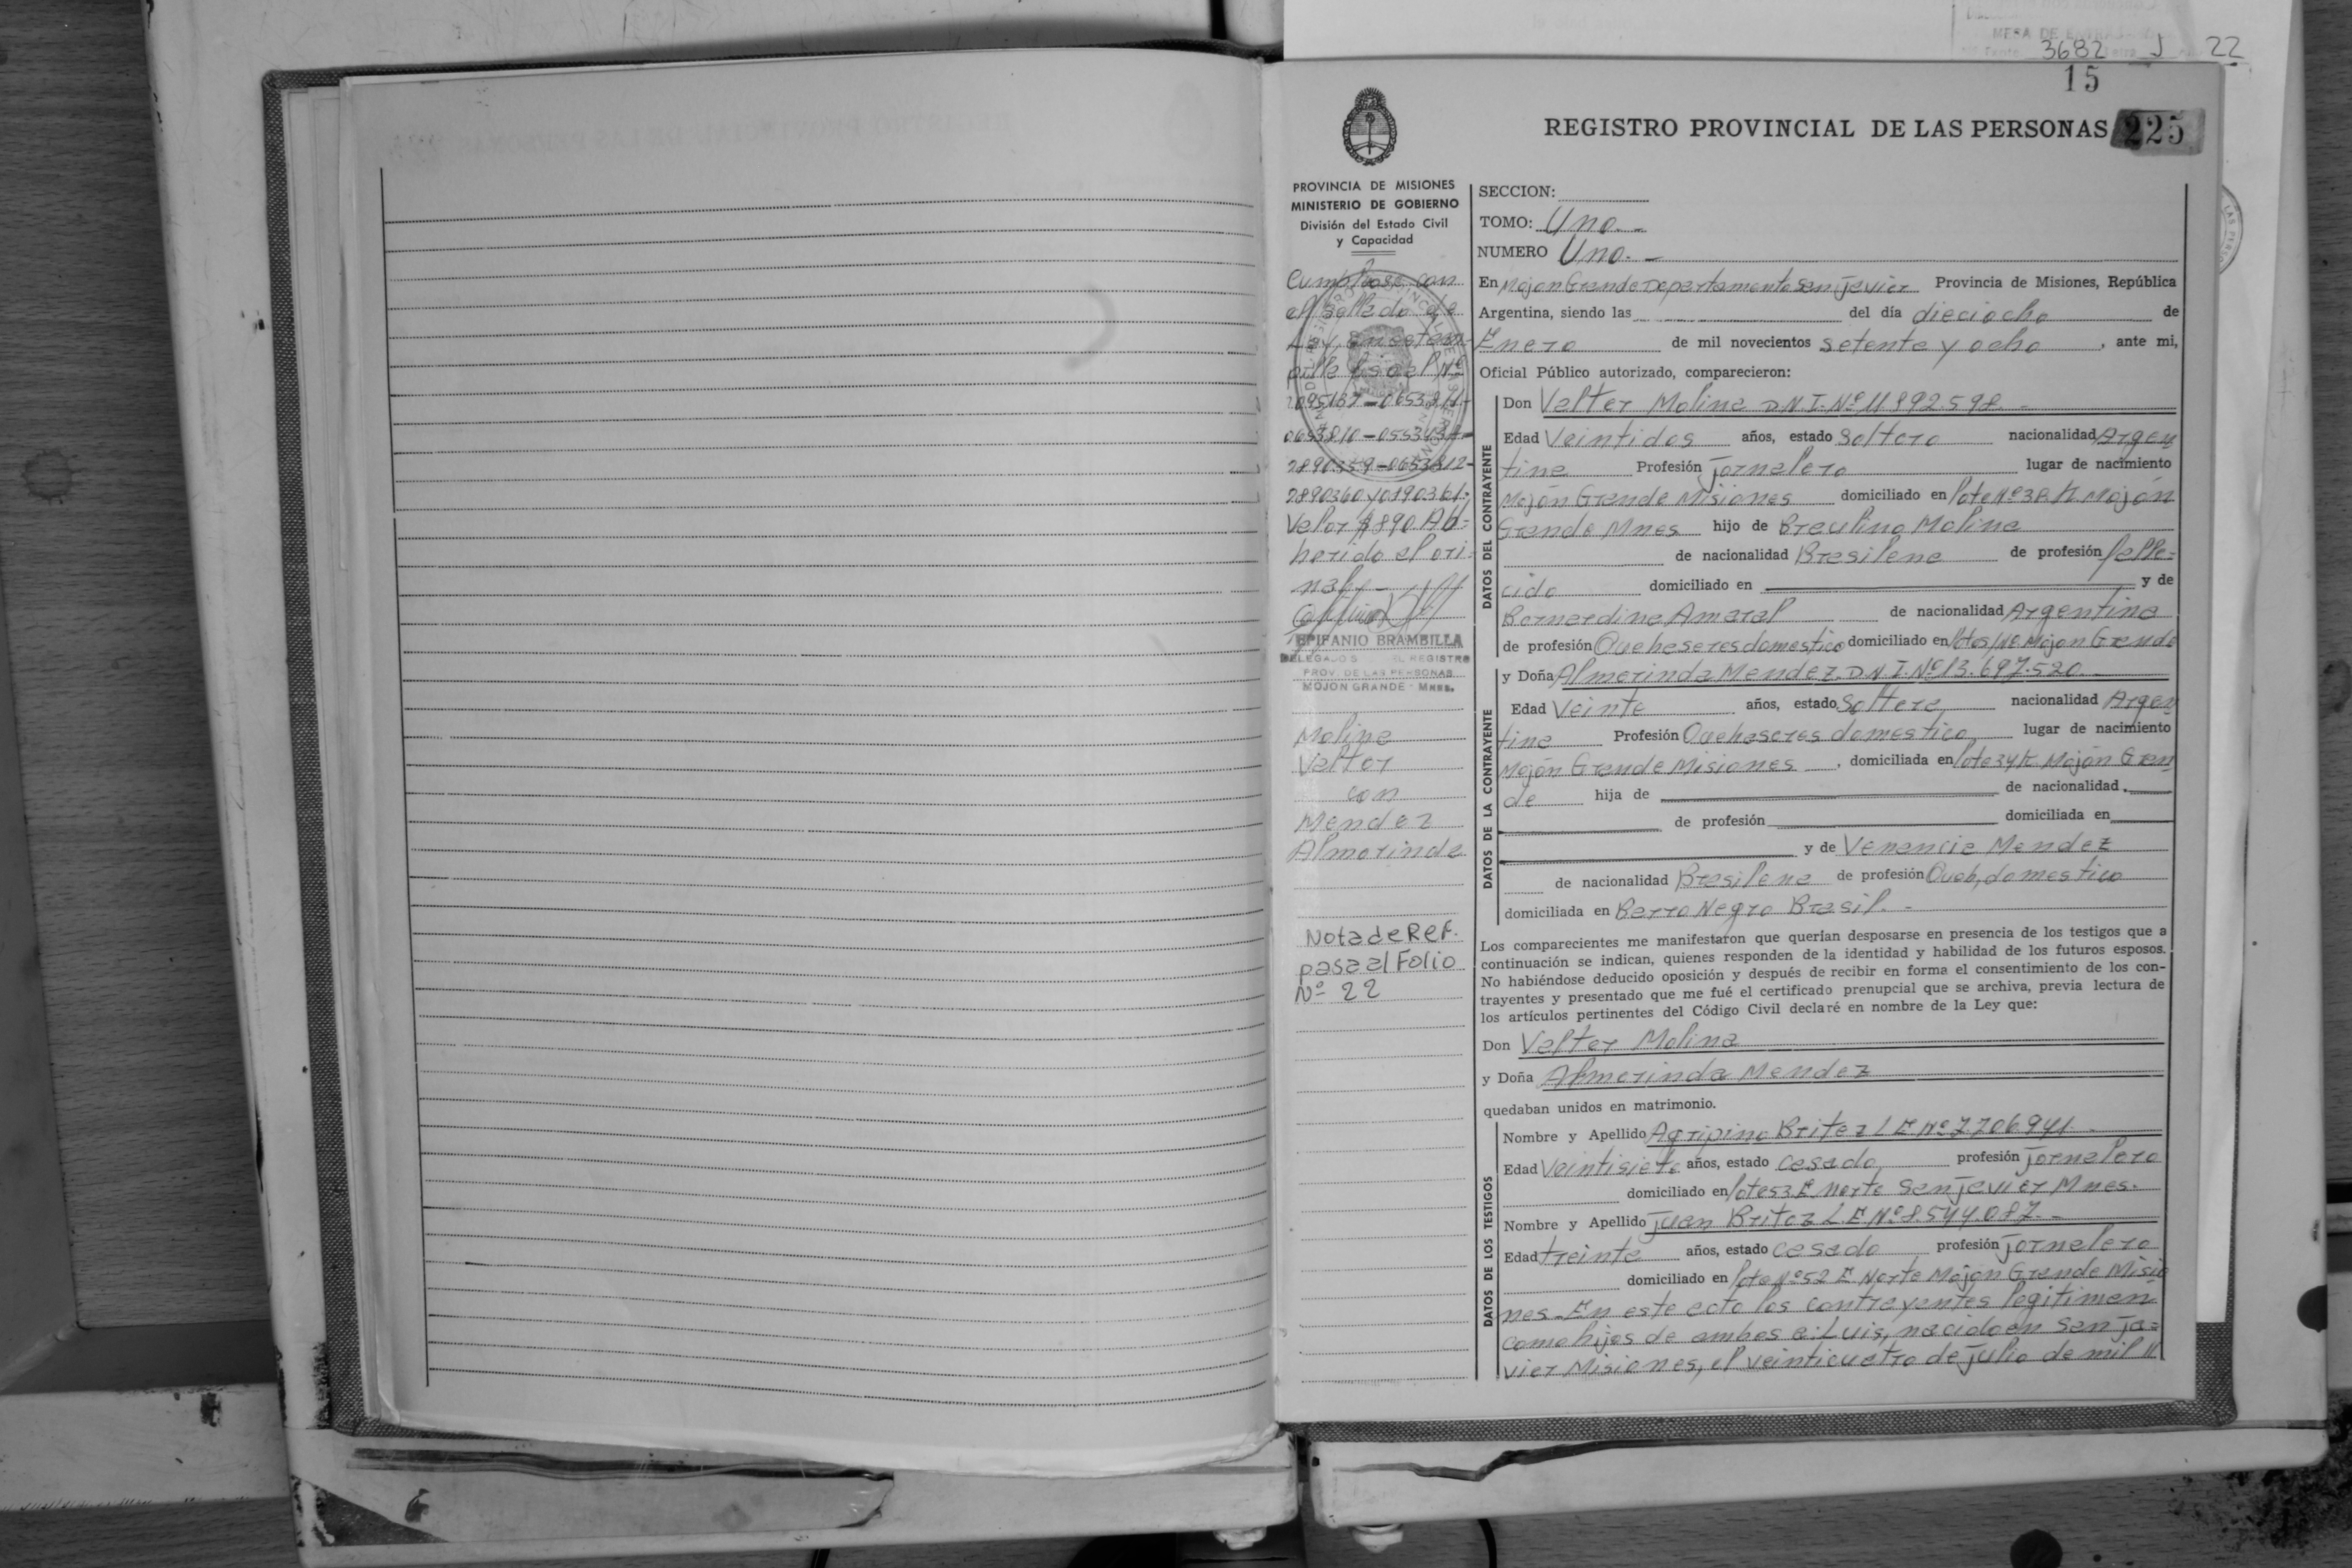 3682 J 22
15
REGISTRO PROVINCIAL DE LAS PERSONAS 225
PROVINCIA DE MISIONES
MINISTERIO DE GOBIERNO
División del Estado Civil
y Capacidad
Cumplose con
el sellado de
Ley, en estam-
pilla fiscal Nº
2095137-0653811-
0653810-
2890359-0653812-
2890360 y 0190361.
Valor $890 Ad-
herido al ori-
nal.-
EPIFANIO BRAMBILLA
DELEGADO EL REGISTRO
PROV. DE LAS PERSONAS
MOJON GRANDE - MNES.
Molina
Valter
con
Mendez
Almerinda
Nota de Ref.
pasa al Folio
Nº 22
SECCION:
TOMO: Uno.-
NUMERO Uno.-
En Mojon Grande Departamento San Javier Provincia de Misiones, República
Argentina, siendo las del día dieciocho de
Enero de mil novecientos setenta y ocho, ante mi,
Oficial Público autorizado, comparecieron:
DATOS DEL CONTRAYENTE
Don Valter Molina D.N.I. Nº 11892598.-
Edad Veintidos años, estado Soltero nacionalidad Argen
tina Profesión Jornalero lugar de nacimiento
Mojón Grande Misiones domiciliado en Lote Nº 3B K. Mojón
Grande Mnes hijo de Braulino Molina
de nacionalidad Brasilena de profesión falle=
cido domiciliado en y de
Bernardina Amaral de nacionalidad Argentina
de profesión Quehaseres domestico domiciliado en Mojon Grande
DATOS DE LA CONTRAYENTE
y Doña Almerinda Mendez. D.N.I. Nº 13.697.520.-
Edad Veinte años, estado Soltera, nacionalidad Argen
tina Profesión Quehaseres domestico, lugar de nacimiento
Mojón Grande Misiones, domiciliada en Lote 34 K Mojón Gran
de hija de de nacionalidad
de profesión domiciliada en
y de Venancia Mendez
de nacionalidad Brasilena de profesión Queh, domestico
domiciliada en Barro Negro Brasil.-
Los comparecientes me manifestaron que querían desposarse en presencia de los testigos que a
continuación se indican, quienes responden de la identidad y habilidad de los futuros esposos.
No habiéndose deducido oposición y después de recibir en forma el consentimiento de los con-
trayentes y presentado que me fué el certificado prenupcial que se archiva, previa lectura de
los artículos pertinentes del Código Civil declaré en nombre de la Ley que:
Don Valter Molina
y Doña Almerinda Mendez
quedaban unidos en matrimonio.
DATOS DE LOS TESTIGOS
Nombre y Apellido Agripino Britez L E. Nº 7.706.941.-
Edad Veintisiete años, estado casado, profesión Jornalero
domiciliado en Lote 53 E Norte San Javier Mnes.
Nombre y Apellido Juan Britez L.E. Nº 8.544.087.-
Edad treinta años, estado casado profesión Jornalero
domiciliado en Lote Nº 52 E Norte Mojón Grande Misio
nes-En este acto los contrayentes legitiman
como hijos de ambos a: Luis, nacido en San Ja=
vier Misiones, el veinticuatro de Julio de mil //